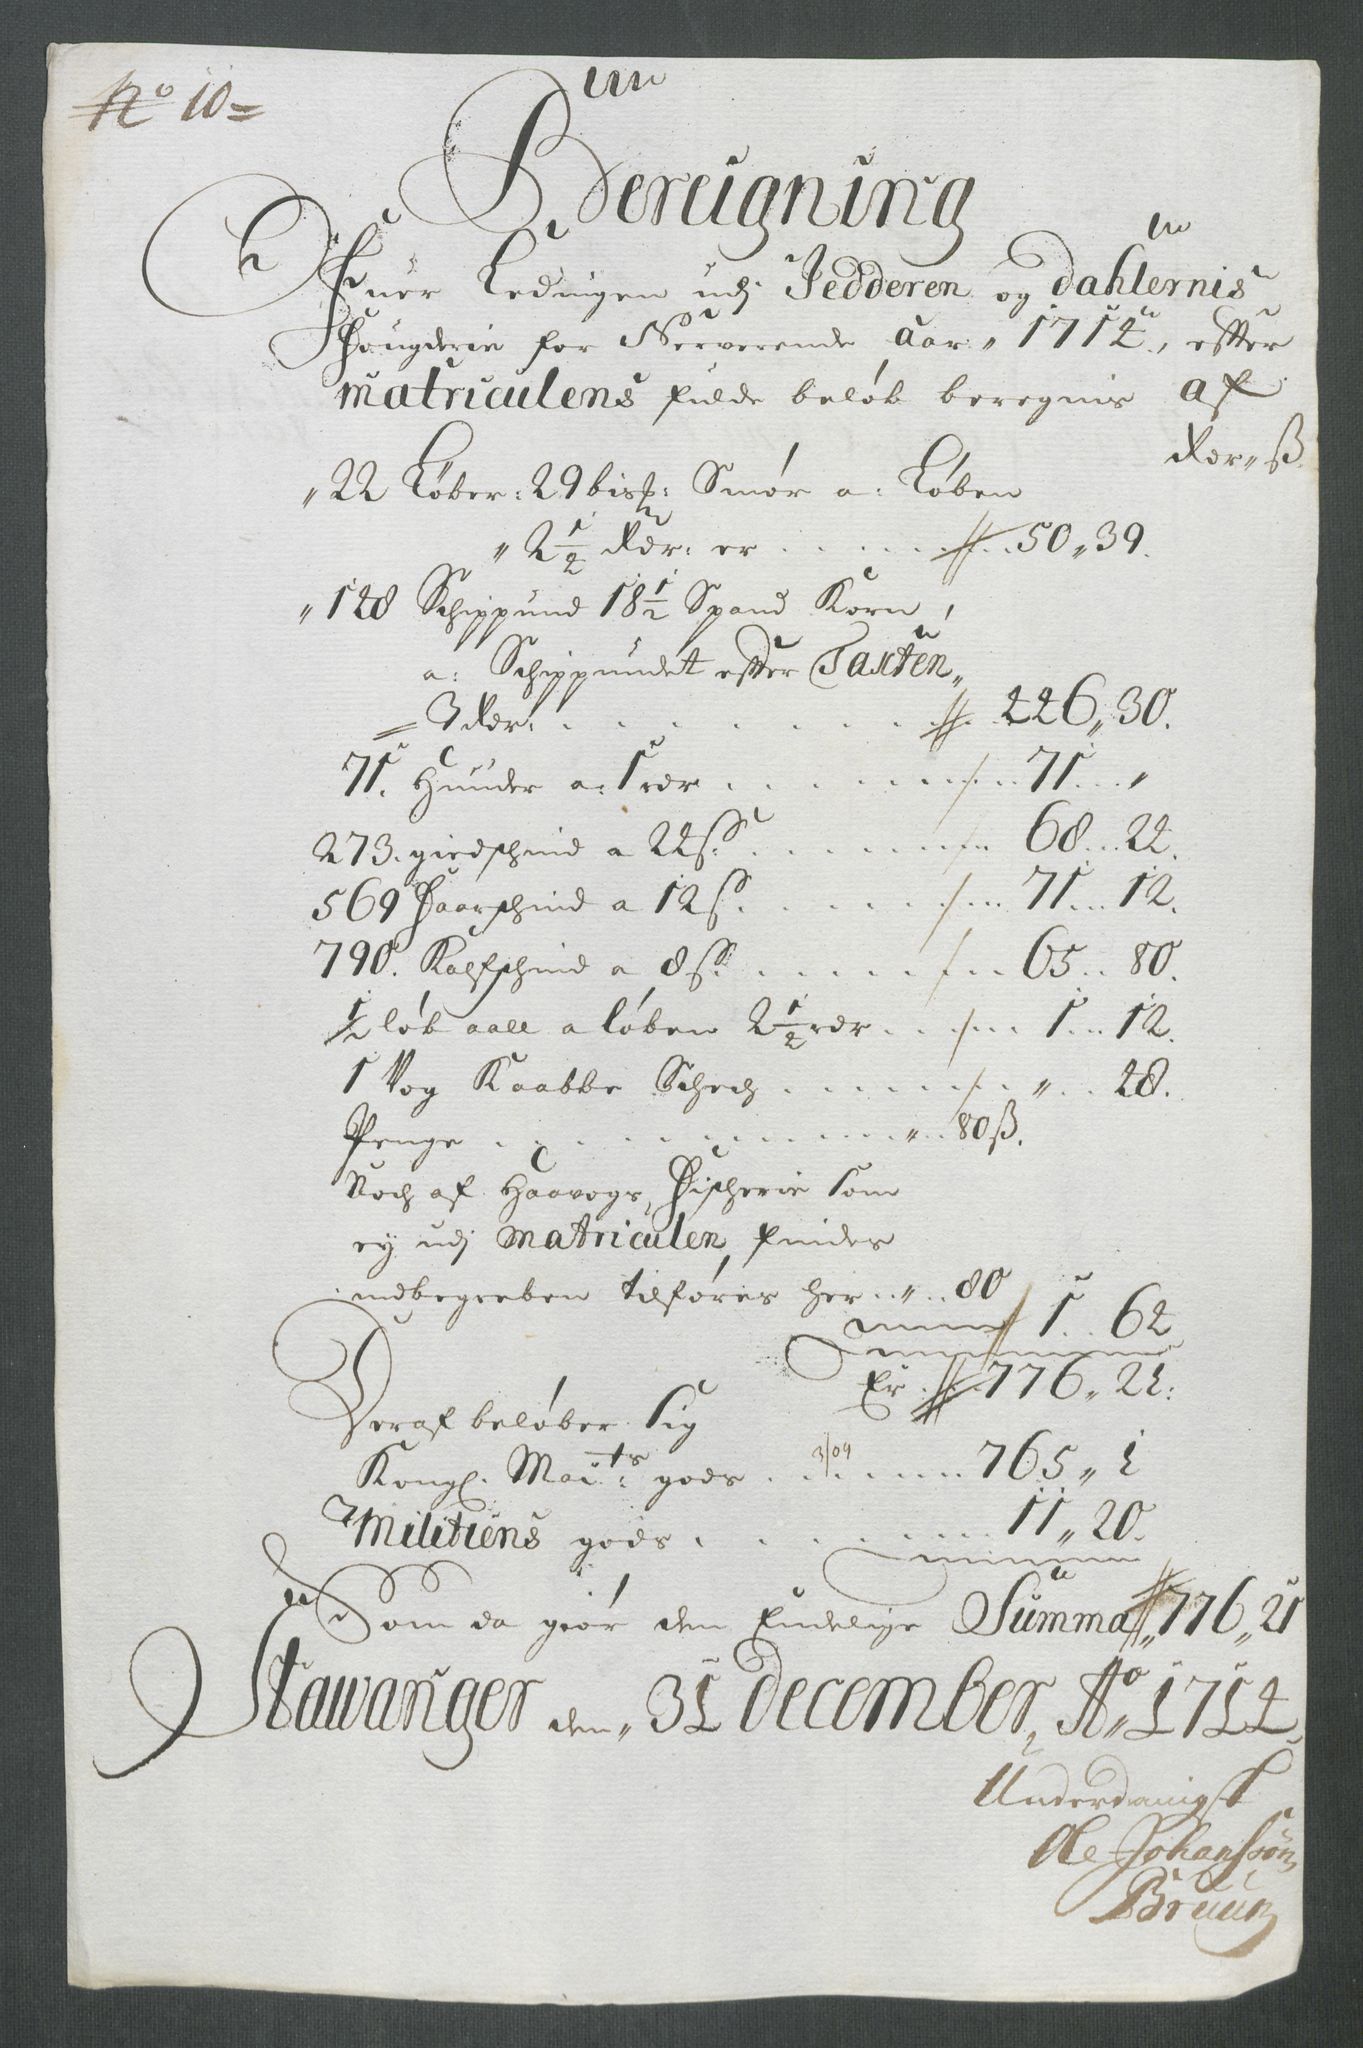 No 10=
Bereigning
Ofuer Ledingen udj Jedderen og Dahlernis
Fougderie for Nerverende aar " 1714, effter
matriculens fulde beløb beregnis af
Rdr " ß
" 22 Løber: 29 bisp: Smør a: Løben
" 2 1/2 Rdr: er . . . . 50 " 39.
" 148 Schippund 18 1/2 Spand Korn,
a: Schippundet effter Taxten "
= 3 Rdr: . . . . 446 " 30.
71. Huuder a: 1 rdr . . . . 71 . . "
273. giedschind a 24 ß. . . . . 68 . . 24.
569 Faarschind a 12 ß. . . . . 71 . . 12.
790. Kalfschind a 8 ß. . . . . 65 . . 80.
1/2 løb aall a løben 2 1/2 rdr . . . . 1 . . 12.
1 Vog Kaabbe Schech . . . . " . . 48.
Penge . . . . " . . 80 ß.
Noch af Haavogs Fischerie som
ej udj Matriculen findes
indbegreben tilføres her . . " . . 80
1 . . 64
Er . . 776 " 21:
Deraf beløber sig
Kongl. Maits: gods . . . . 765 " 1
3/09
Militiens gods . . . . 11 " 20.
Som da giør den Endelige Summa " 776 " 21
Stawanger den " 31 december Ao " 1714
Underdanigst
Ole Johanssøn
Bruun